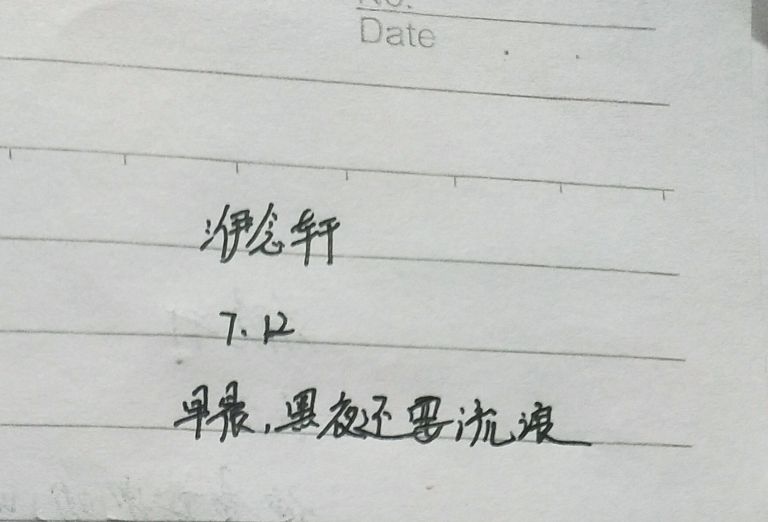 No.
Date
念轩
7.12
早晨，黑夜还要流浪